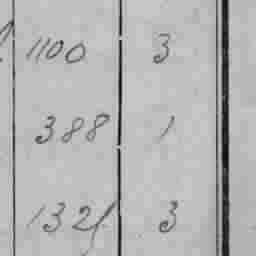 1100 3
388 1
132 3